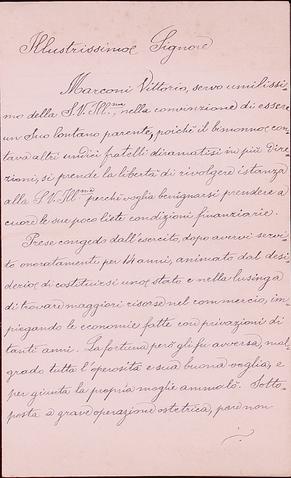 Illustrissimo Signore
Marconi Vittorio, servo umilissi-
mo della S.V. Ill.ma, nella convinzione di essere
un Suo lontano parente, poichè il bisnonno con-
tava altri undici fratelli diramatisi in più dire-
zioni, si prende la libertà di rivolgere istanza
alla S.V. Ill.ma perchè voglia benignarsi prendere a
cuore le sue poco liete condizioni finanziarie.
Prese congedo dall'esercito, dopo avervi servi-
to onoratamente per 14 anni, animato dal desi-
derio di costituirsi uno stato e nella lusinga
di trovare maggiori risorse nel commercio, im-
piegando le economie fatte con privazioni di
tanti anni. La fortuna però gli fu avversa, mal-
grado tutta l'operosità e sua buona voglia, e
per giunta la propria moglie ammalò. Sotto-
posta a grave operazione ostetrica, pare non